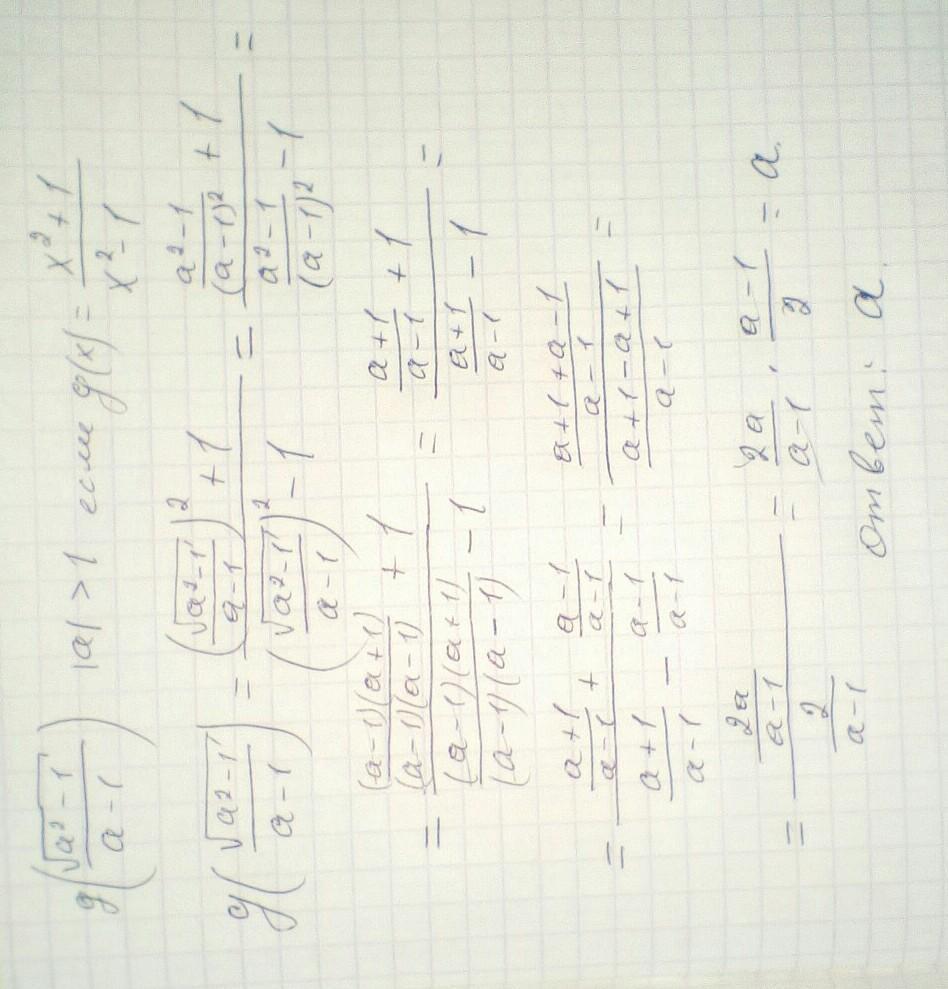 g(√(a²-1)/(a-1)) |a|>1 если g(x) = (x²+1)/(x²-1)
g(√(a²-1)/(a-1)) = ((√(a²-1)/(a-1))²+1)/((√(a²-1)/(a-1))²-1) = ((a²-1)/(a-1)²+1)/((a²-1)/(a-1)²-1) =
= ((a-1)(a+1)/((a-1)(a-1))+1)/((a-1)(a+1)/((a-1)(a-1))-1) = ((a+1)/(a-1)+1)/((a+1)/(a-1)-1) =
= ((a+1)/(a-1)+(a-1)/(a-1))/((a+1)/(a-1)-(a-1)/(a-1)) = ((a+1+a-1)/(a-1))/((a+1-a+1)/(a-1)) =
= (2a/(a-1))/(2/(a-1)) = 2a/(a-1) · (a-1)/2 = a.
ответ: a.